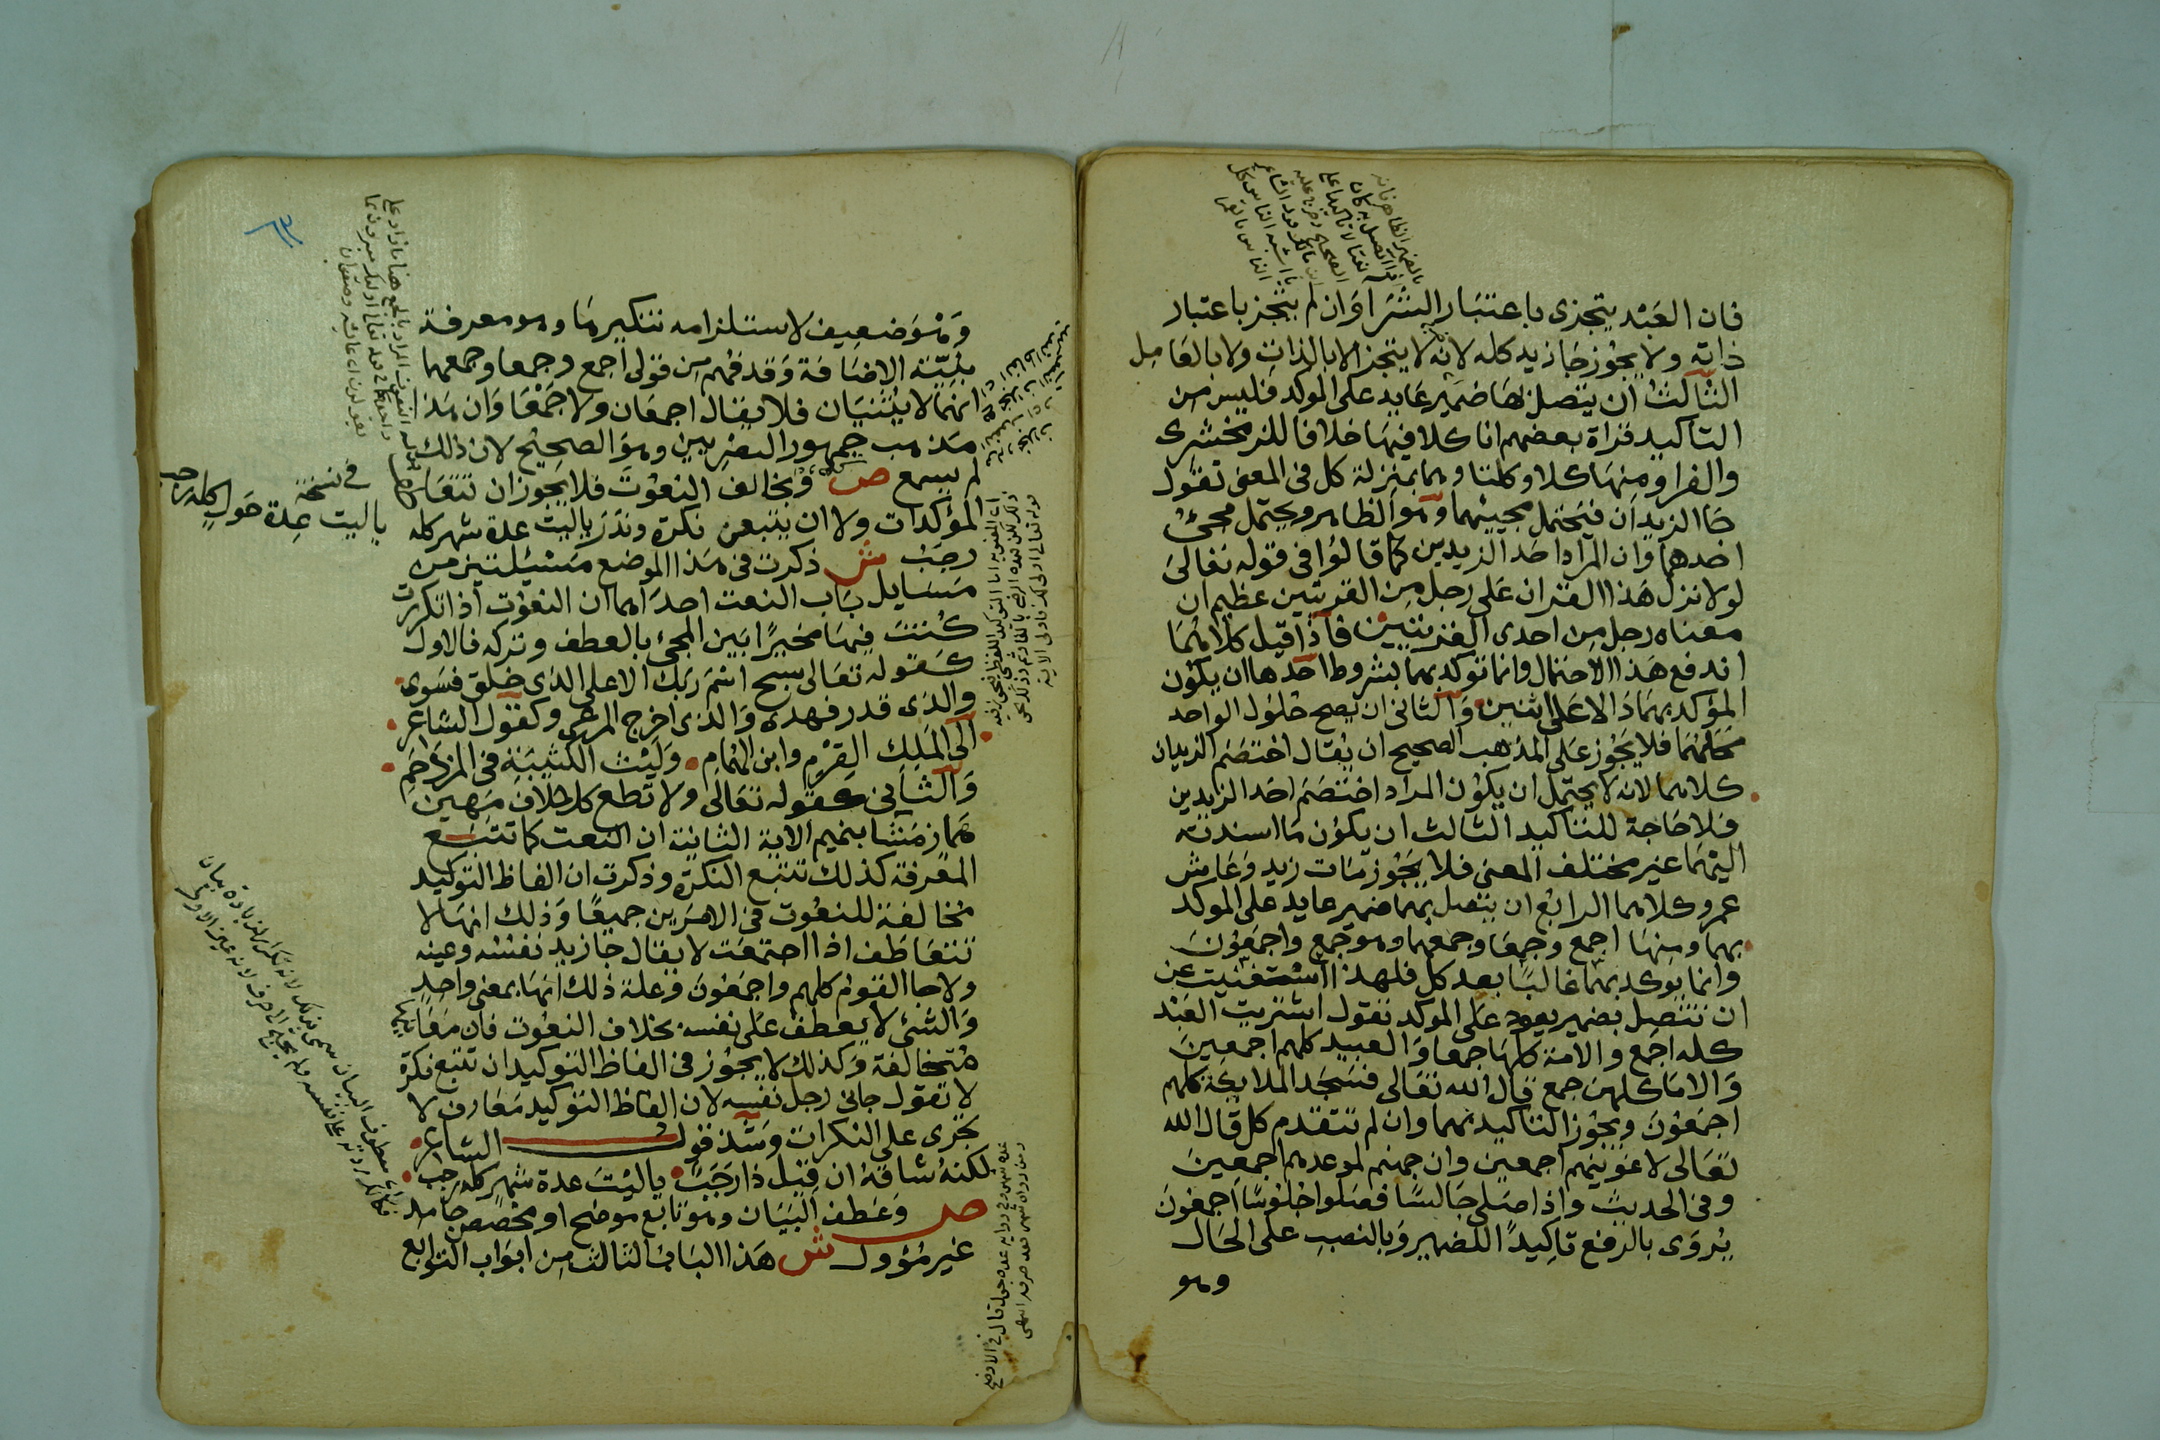 فان العبد يتجزى باعتبار الشرا وان لم يتجز باعتبار
ذاته ولا يجوز جا زيد كله لانه لا يتجز لا بالذات ولا بالعامل
الثالث ان يتصل بها ضمير عايد على الموكد فليس من
التاكيد قراة بعضهم انا كلا فيها خلافا للزمخشرى
والفرا ومنها كلا وكلتا وهما بمنزلة كل فى المعنى تقول
جا الزيدان فيحتمل مجييهما وهو الظاهر ويحتمل مجئ
احدهما وان المراد احد الزيدين كما قالوا فى قوله تعالى
لولا نزل هذا القران على رجل من القريتين عظيم ان
معناه رجل من احدى القريتين فاذا قيل كلاهما
اندفع هذا الاحتمال وانما توكد بهما بشروط احدها ان يكون
الموكد بهما دالا على اثنين والثانى ان يصح حلول الواحد
محلهما فلا يجوز على المذهب الصحيح ان يقال اختصم الزيدان
كلاهما لانه لا يحتمل ان يكون المراد اختصم احد الزيدين
فلا حاجة للتاكيد الثالث ان يكون ما اسندته
اليهما غير مختلف المعنى فلا يجوز مات زيد وعاش
عمرو كلاهما الرابع ان يتصل بهما ضمير عايد على الموكد
بهما ومنها اجمع وجمعا وجمعهما وهو جمع واجمعون
وانما يوكد بهما غالبا بعد كل فلهذا استغنيت عن
ان تتصل بضمير يعود على الموكد تقول اشتريت العبد
كله اجمع والامة كلها جمعا والعبيد كلهم اجمعين
والاما كلهن جمع قال الله تعالى فسجد الملايكة كلهم
اجمعون ويجوز التاكيد بهما وان لم تتقدم كل قال الله
تعالى لاغوينهم اجمعين وان جهنم لموعدهم اجمعين
وفى الحديث واذا صلى جالسا فصلوا جلوسا اجمعون
يروى بالرفع تاكيدا للضمير وبالنصب على الحال
وهو
وهو ضعيف لاستلزامه تنكيرها وهو معرفة
بنية الاضافة وقد فهم من قولى اجمع وجمعا وجمعهما
انهما لا يثنيان فلا يقال اجمعان ولا جمعا وان هذا
مذهب جمهور البصريين وهو الصحيح لان ذلك
لم يسمع ص ويخالف النعوت فلا يجوز ان تتعا
المؤكدات ولا ان يتبعن نكرة وندر ياليت عدة شهر كله
رجب ش ذكرت فى هذا الموضع مسئيلتين من
مسايل باب النعت احداهما ان النعوت اذا تكررت
كنت فيها مخيرا بين المجئ بالعطف وتركه فالاول
كقوله تعالى سبح اسم ربك الاعلى الذى خلق فسوى
والذى قدر فهدى والذى اخرج المرعى وكقول الشاعر
الى الملك القرم وابن الهمام وليث الكتيبة فى المزدحم
والثانى كقوله تعالى ولا تطع كل حلاف مهين
هماز مشا بنميم الاية الثانية ان النعت كما تتبع
المعرفة كذلك تتبع النكرة وذكرت ان الفاظ التوكيد
مخالفة للنعوت فى الامرين جميعا وذلك انها لا
تتعاطف اذا اجتمعت لا يقال جا زيد نفسه وعينه
ولا جا القوم كلهم واجمعون وعلة ذلك انها بمعنى واحد
والشئ لا يعطف على نفسه بخلاف النعوت فان معانيها
متخالفة وكذلك لا يجوز فى الفاظ التوكيد ان تتبع نكرة
لا تقول جانى رجل نفسه لان الفاظ التوكيد معارف لا
تجرى على النكرات وشذ قول الشاعر
لكنه شاقه ان قيل ذا رجب ياليت عدة شهر كله رجب
ص وعطف البيان وهو تابع موضح او مخصص جامد
غير مؤول ش هذا الباب الثالث من ابواب التوابع
فى نسخة
ياليت عدة حول كله رجب